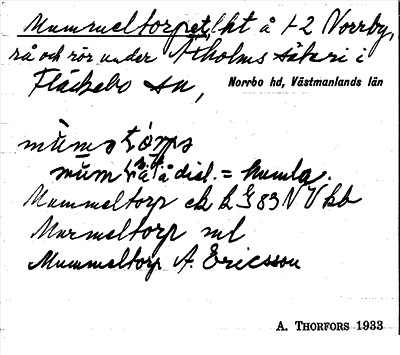 Mummeltorpet, lht å 1-2 Norrby,
rå och rör under Atholms säteri i
Fläckebo sn, Norrbo hd, Västmanlands län
mùmstórps
mùm å dial. = humla.
Mummeltorp ek k G 83 NV kb
Murmeltorp ml
Mummeltorp A. Ericsson
A. THORFORS 1933